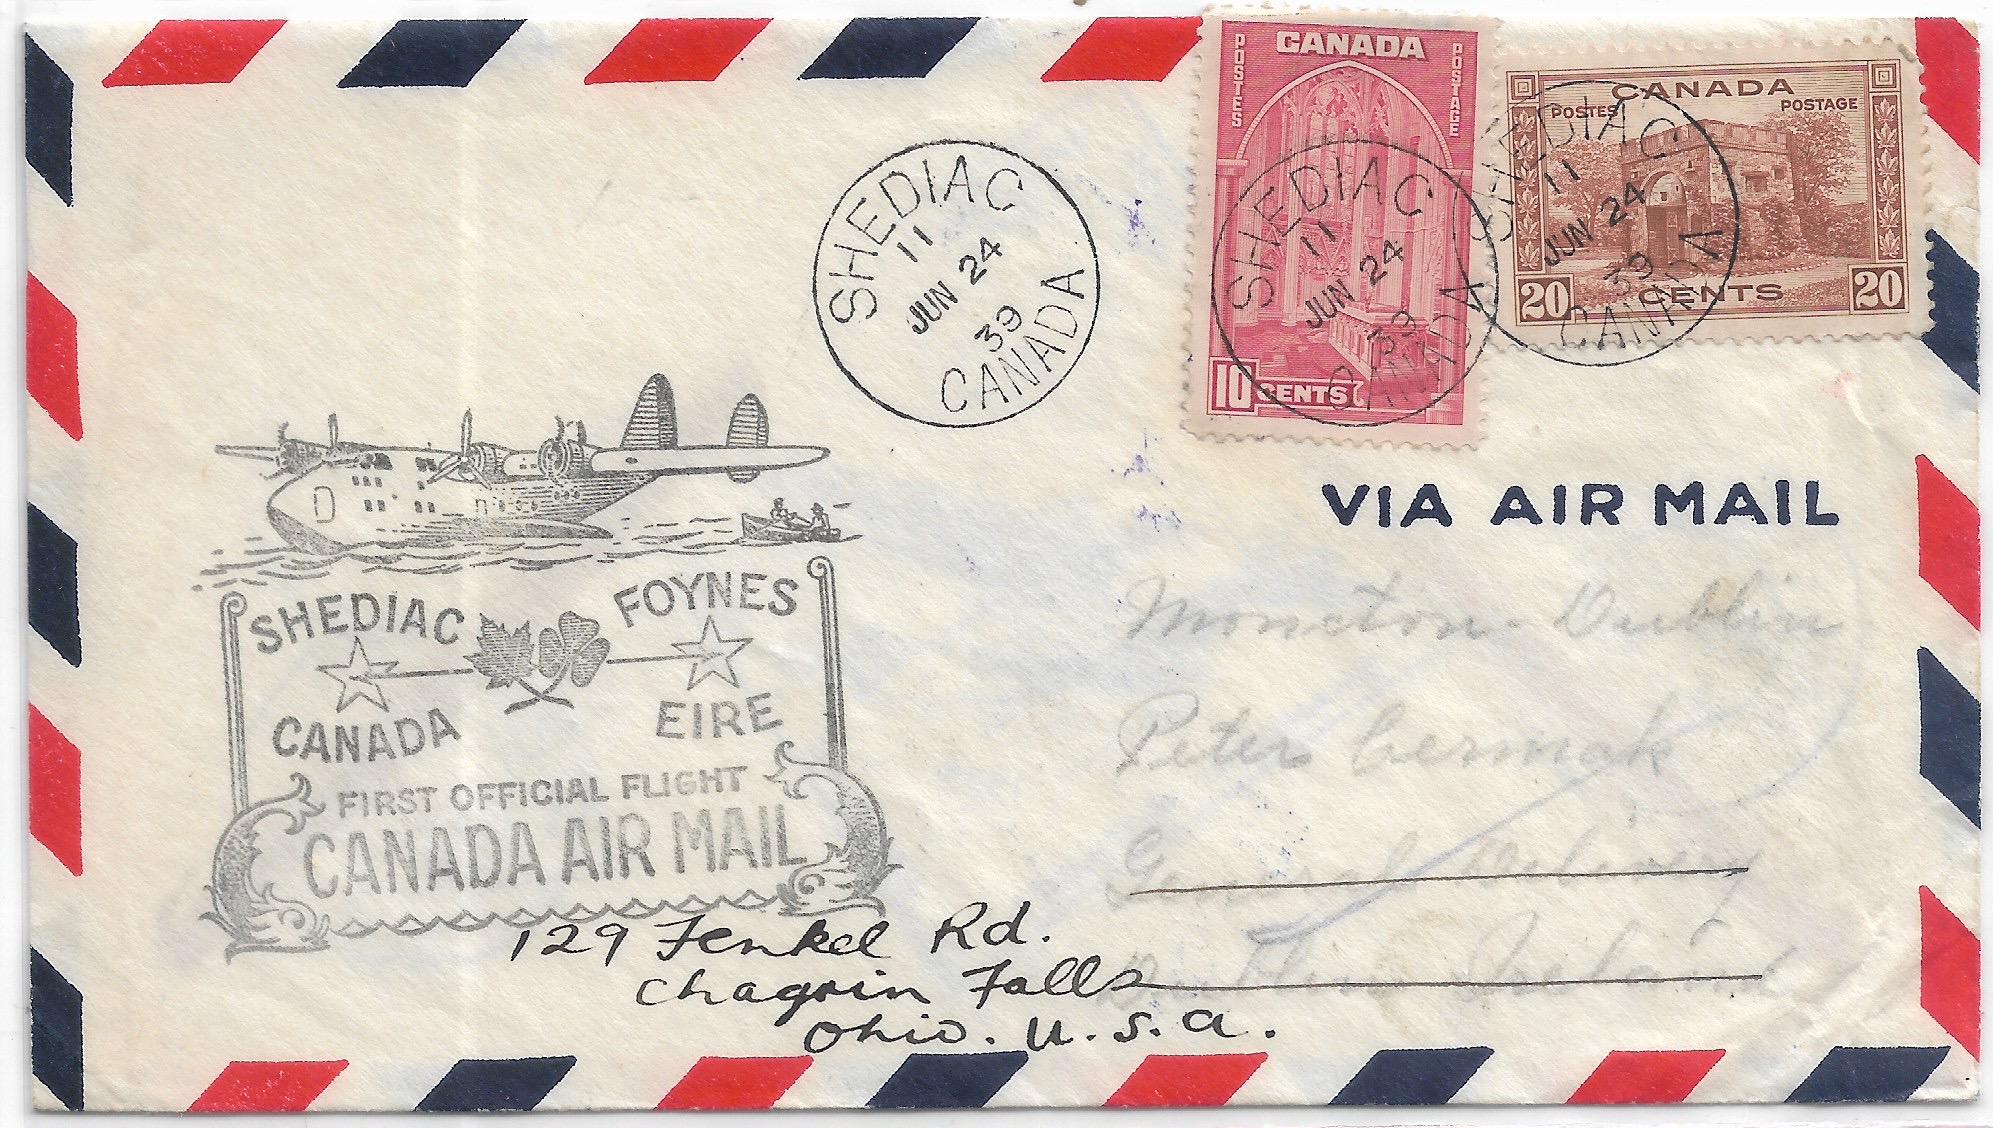 POSTES
CANADA
POSTAGE
10 CENTS
CANADA
POSTES
POSTAGE
20 CENTS 20
SHEDIAC
11
JUN 24
39
CANADA
SHEDIAC
11
JUN 24
39
CANADA
SHEDIAC
11
JUN 24
39
CANADA
VIA AIR MAIL
SHEDIAC
CANADA
FOYNES
EIRE
FIRST OFFICIAL FLIGHT
CANADA AIR MAIL
Moncton - Dublin
Peter Cermak
General Delivery
Dublin Ireland
129 Fenkel Rd.
Chagrin Falls
Ohio. U.S.A.